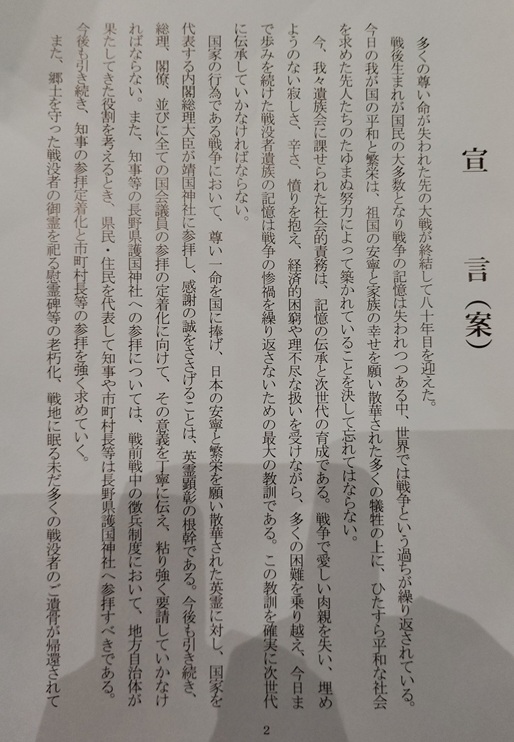 宣 言（案）
多くの尊い命が失われた先の大戦が終結して八十年目を迎えた。
戦後生まれが国民の大多数となり戦争の記憶は失われつつある中、世界では戦争という過ちが繰り返されている。
今日の我が国の平和と繁栄は、祖国の安寧と家族の幸せを願い散華された多くの犠牲の上に、ひたすら平和な社会
を求めた先人たちのたゆまぬ努力によって築かれていることを決して忘れてはならない。
今、我々遺族会に課せられた社会的責務は、記憶の伝承と次世代の育成である。戦争で愛しい肉親を失い、埋め
ようのない寂しさ、辛さ、憤りを抱え、経済的困窮や理不尽な扱いを受けながら、多くの困難を乗り越え、今日ま
で歩みを続けた戦没者遺族の記憶は戦争の惨禍を繰り返さないための最大の教訓である。この教訓を確実に次世代
に伝承していかなければならない。
国家の行為である戦争において、尊い一命を国に捧げ、日本の安寧と繁栄を願い散華された英霊に対し、国家を
代表する内閣総理大臣が靖国神社に参拝し、感謝の誠をささげることは、英霊顕彰の根幹である。今後も引き続き、
総理、閣僚、並びに全ての国会議員の参拝の定着化に向けて、その意義を丁寧に伝え、粘り強く要請していかなけ
ればならない。また、知事等の長野県護国神社への参拝については、戦前戦中の徴兵制度において、地方自治体が
果たしてきた役割を考えるとき、県民、住民を代表して知事や市町村長等は長野県護国神社へ参拝すべきである。
今後も引き続き、知事の参拝定着化と市町村長等の参拝を強く求めていく。
また、郷土を守った戦没者の御霊を祀る慰霊碑等の老朽化、戦地に眠る未だ多くの戦没者のご遺骨が帰還されて
2